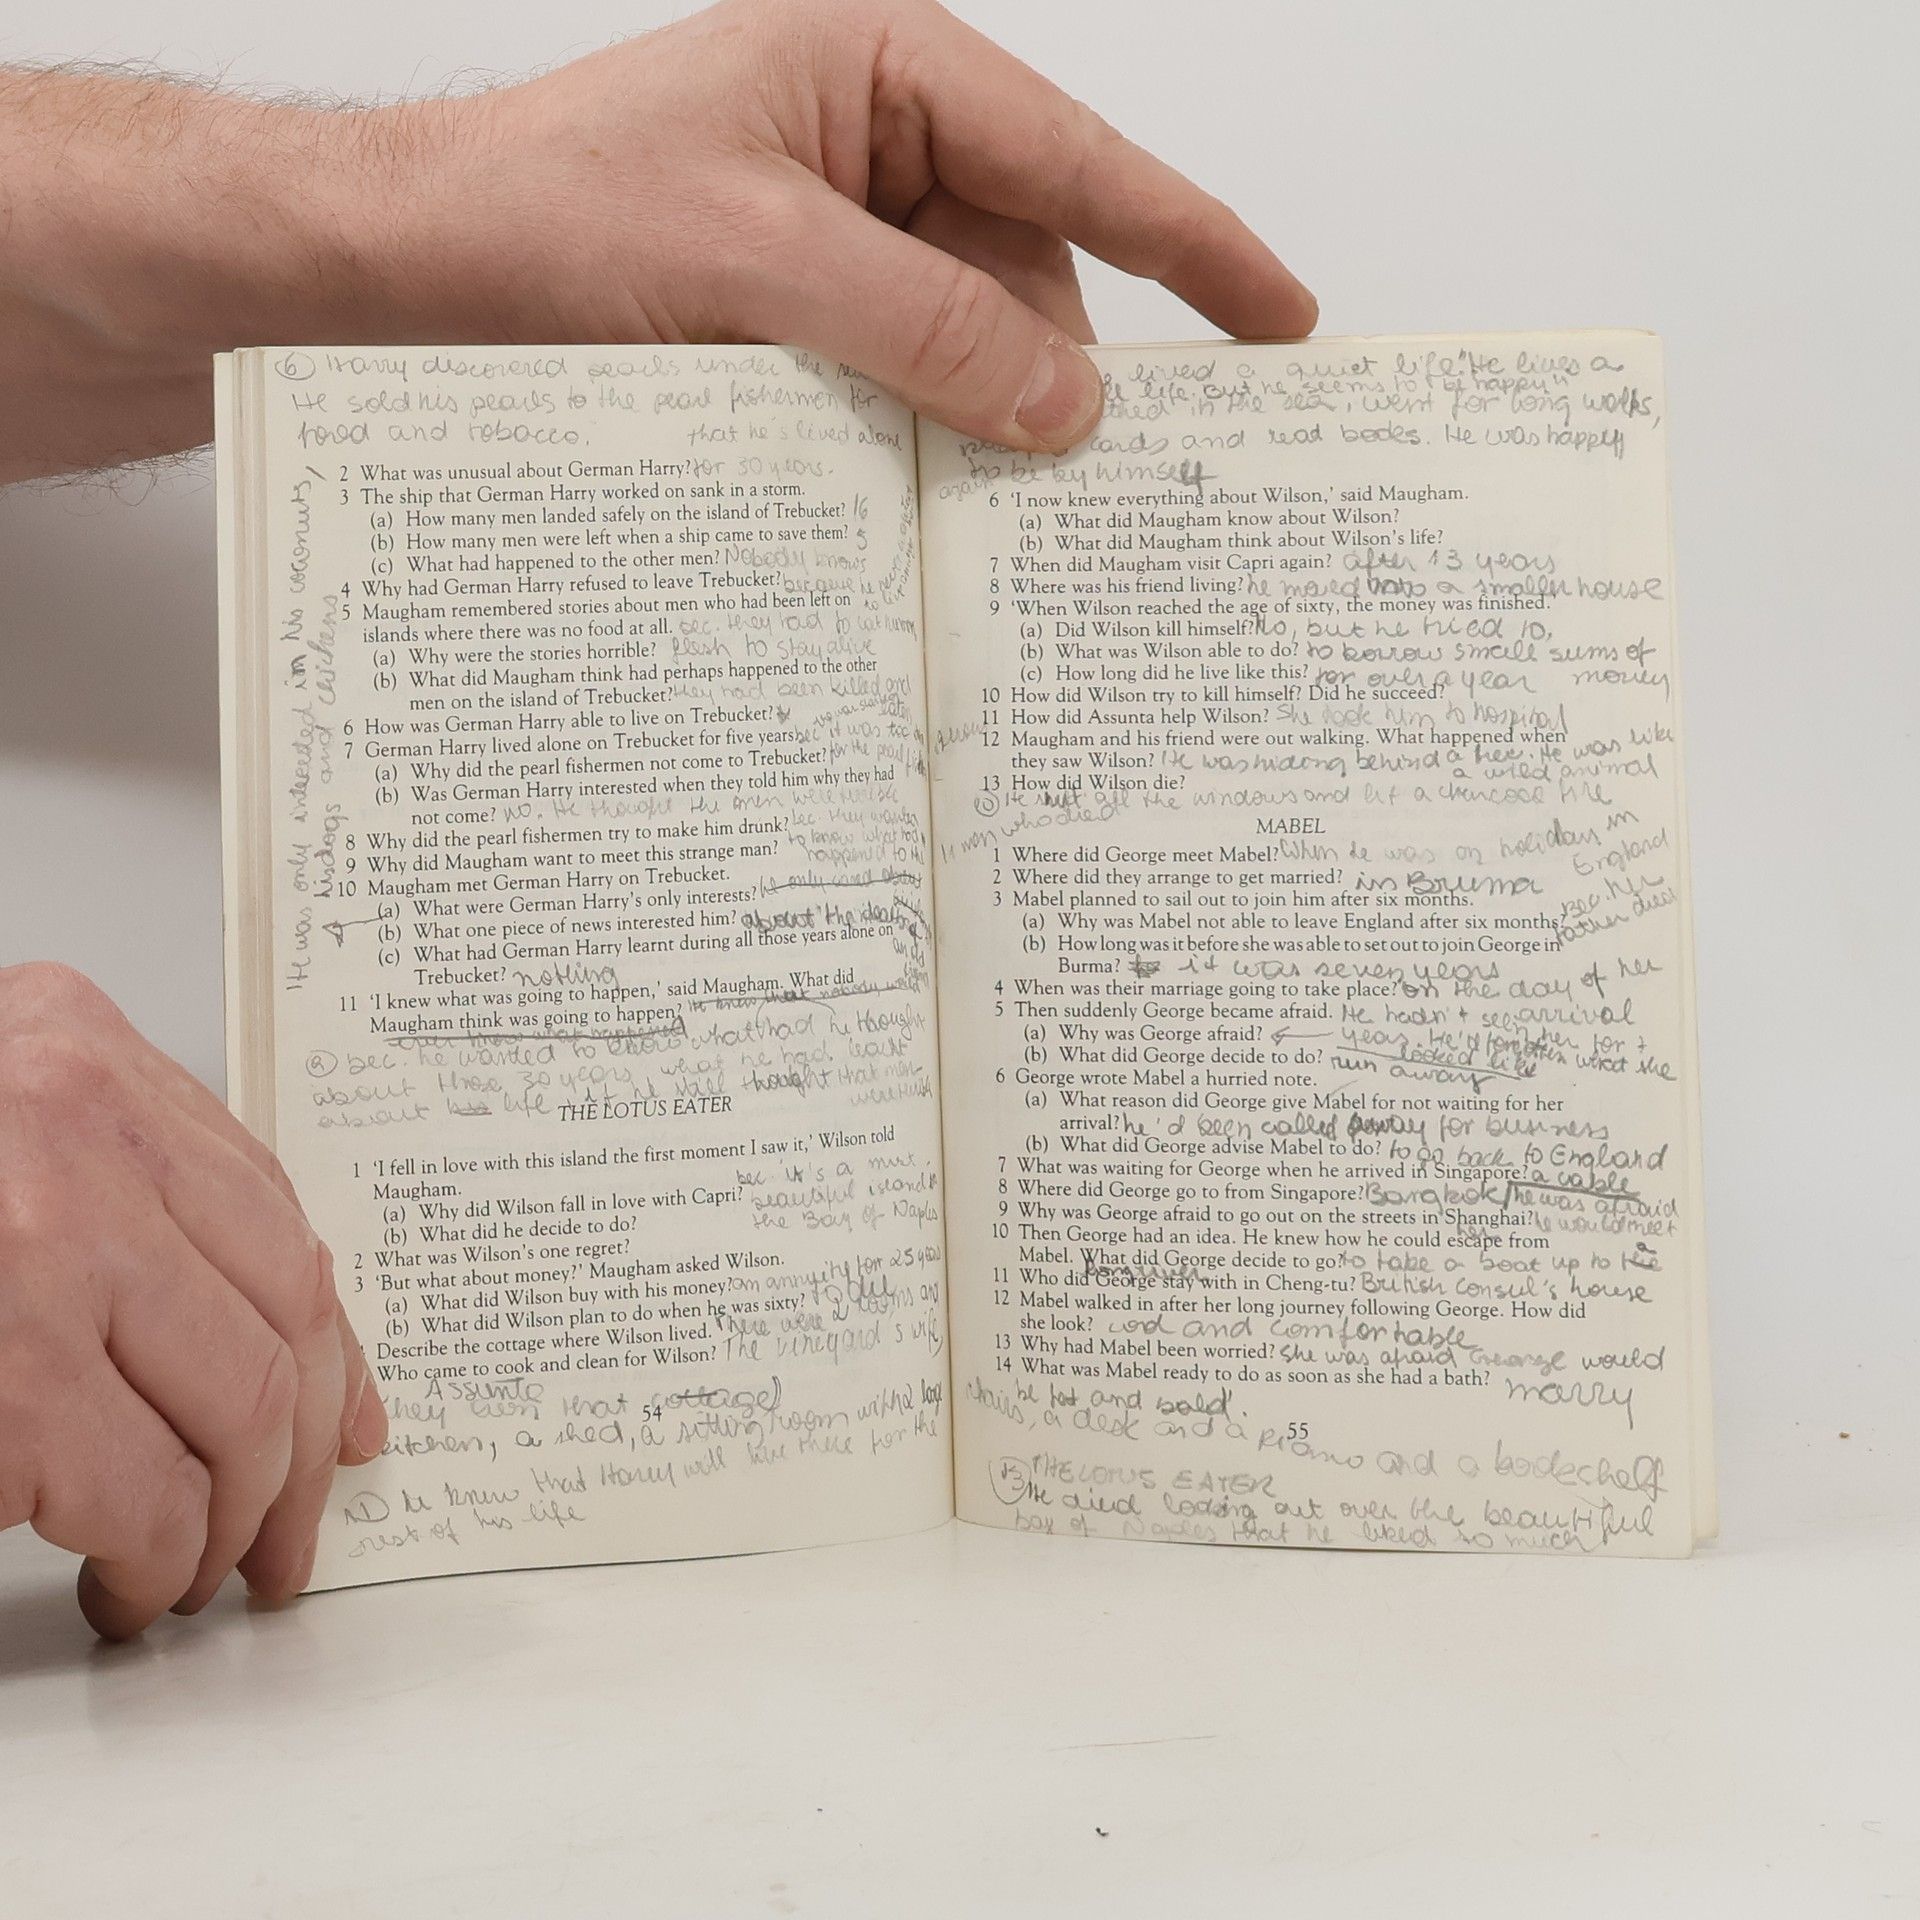 6 Harry discovered pearls under the
He sold his pearls to the pearl fishermen for
food and tobacco.
that he's lived alone
2 What was unusual about German Harry? for 30 years.
3 The ship that German Harry worked on sank in a storm.
(a) How many men landed safely on the island of Trebucket? 16
(b) How many men were left when a ship came to save them? 5
(c) What had happened to the other men? Nobody knows
4 Why had German Harry refused to leave Trebucket? because he
5 Maugham remembered stories about men who had been left on
islands where there was no food at all. bec. they had to eat human
(a) Why were the stories horrible? flesh to stay alive
(b) What did Maugham think had perhaps happened to the other
men on the island of Trebucket? they had been killed and
eaten
6 How was German Harry able to live on Trebucket?
7 German Harry lived alone on Trebucket for five years. bec it was too
(a) Why did the pearl fishermen not come to Trebucket? for the pearl
(b) Was German Harry interested when they told him why they had
not come? no. He thought the men were
8 Why did the pearl fishermen try to make him drunk? bec. they wanted
to know what had
9 Why did Maugham want to meet this strange man? happened to the
10 Maugham met German Harry on Trebucket.
(a) What were German Harry's only interests? he only cared about
(b) What one piece of news interested him? about the death
(c) What had German Harry learnt during all those years alone on
Trebucket? nothing
11 'I knew what was going to happen,' said Maugham. What did
Maugham think was going to happen? He knew that nobody would
ever know what happened
He was only interested in his coconuts,
his dogs and chickens
9 bec. he wanted to know what had he thought
about those 30 years, what he had learnt
about life, if he still thought that men
THE LOTUS EATER
1 'I fell in love with this island the first moment I saw it,' Wilson told
Maugham.
bec. it's a most
(a) Why did Wilson fall in love with Capri? beautiful island in
(b) What did he decide to do? the Bay of Naples
2 What was Wilson's one regret?
3 'But what about money?' Maugham asked Wilson.
(a) What did Wilson buy with his money? an annuity for 25 years
(b) What did Wilson plan to do when he was sixty? to
Describe the cottage where Wilson lived. There were 2 rooms and
Who came to cook and clean for Wilson? The vineyard's wife
Assunta
that cottage
54
kitchen, a shed, a sitting room with 2
11 he knew that Harry will live there for the
rest of his life
lived a quiet life. "He lives a
life. But he seems to be happy"
in the sea, went for long walks,
cards and read books. He was happy
to be by himself
again
6 'I now knew everything about Wilson,' said Maugham.
(a) What did Maugham know about Wilson?
(b) What did Maugham think about Wilson's life?
7 When did Maugham visit Capri again? after 13 years
8 Where was his friend living? he moved into a smaller house
9 'When Wilson reached the age of sixty, the money was finished.'
(a) Did Wilson kill himself? No, but he tried to.
(b) What was Wilson able to do? to borrow small sums of
money
(c) How long did he live like this? for over a year
10 How did Wilson try to kill himself? Did he succeed?
11 How did Assunta help Wilson? She took him to hospital
12 Maugham and his friend were out walking. What happened when
they saw Wilson? He was hiding behind a tree. He was like
a wild animal
13 How did Wilson die?
He shut all the windows and lit a charcoal fire
who died
MABEL
1 Where did George meet Mabel? When he was on holidays in
England
2 Where did they arrange to get married? in Bruma
3 Mabel planned to sail out to join him after six months.
(a) Why was Mabel not able to leave England after six months? Bec. her
father died
(b) How long was it before she was able to set out to join George in
Burma? it was seven years
4 When was their marriage going to take place? on the day of her
arrival
5 Then suddenly George became afraid. He hadn't seen
(a) Why was George afraid? her for 7
years. He'd forgotten what she
looked like
(b) What did George decide to do? run away
6 George wrote Mabel a hurried note.
(a) What reason did George give Mabel for not waiting for her
arrival? he'd been called away for business
(b) What did George advise Mabel to do? to go back to England
7 What was waiting for George when he arrived in Singapore? a cable
8 Where did George go to from Singapore? Bangkok
9 Why was George afraid to go out on the streets in Shanghai? he was afraid
he would meet
her
10 Then George had an idea. He knew how he could escape from
Mabel. What did George decide to go? to take a boat up to the
11 Who did George stay with in Cheng-tu? British consul's house
12 Mabel walked in after her long journey following George. How did
she look? cool and comfortable
13 Why had Mabel been worried? She was afraid George would
be fat and bald.
14 What was Mabel ready to do as soon as she had a bath? marry
chairs, a desk and a piano and a bookshelf
55
13 THE LOTUS EATER
He died looking out over the beautiful
bay of Naples that he liked so much